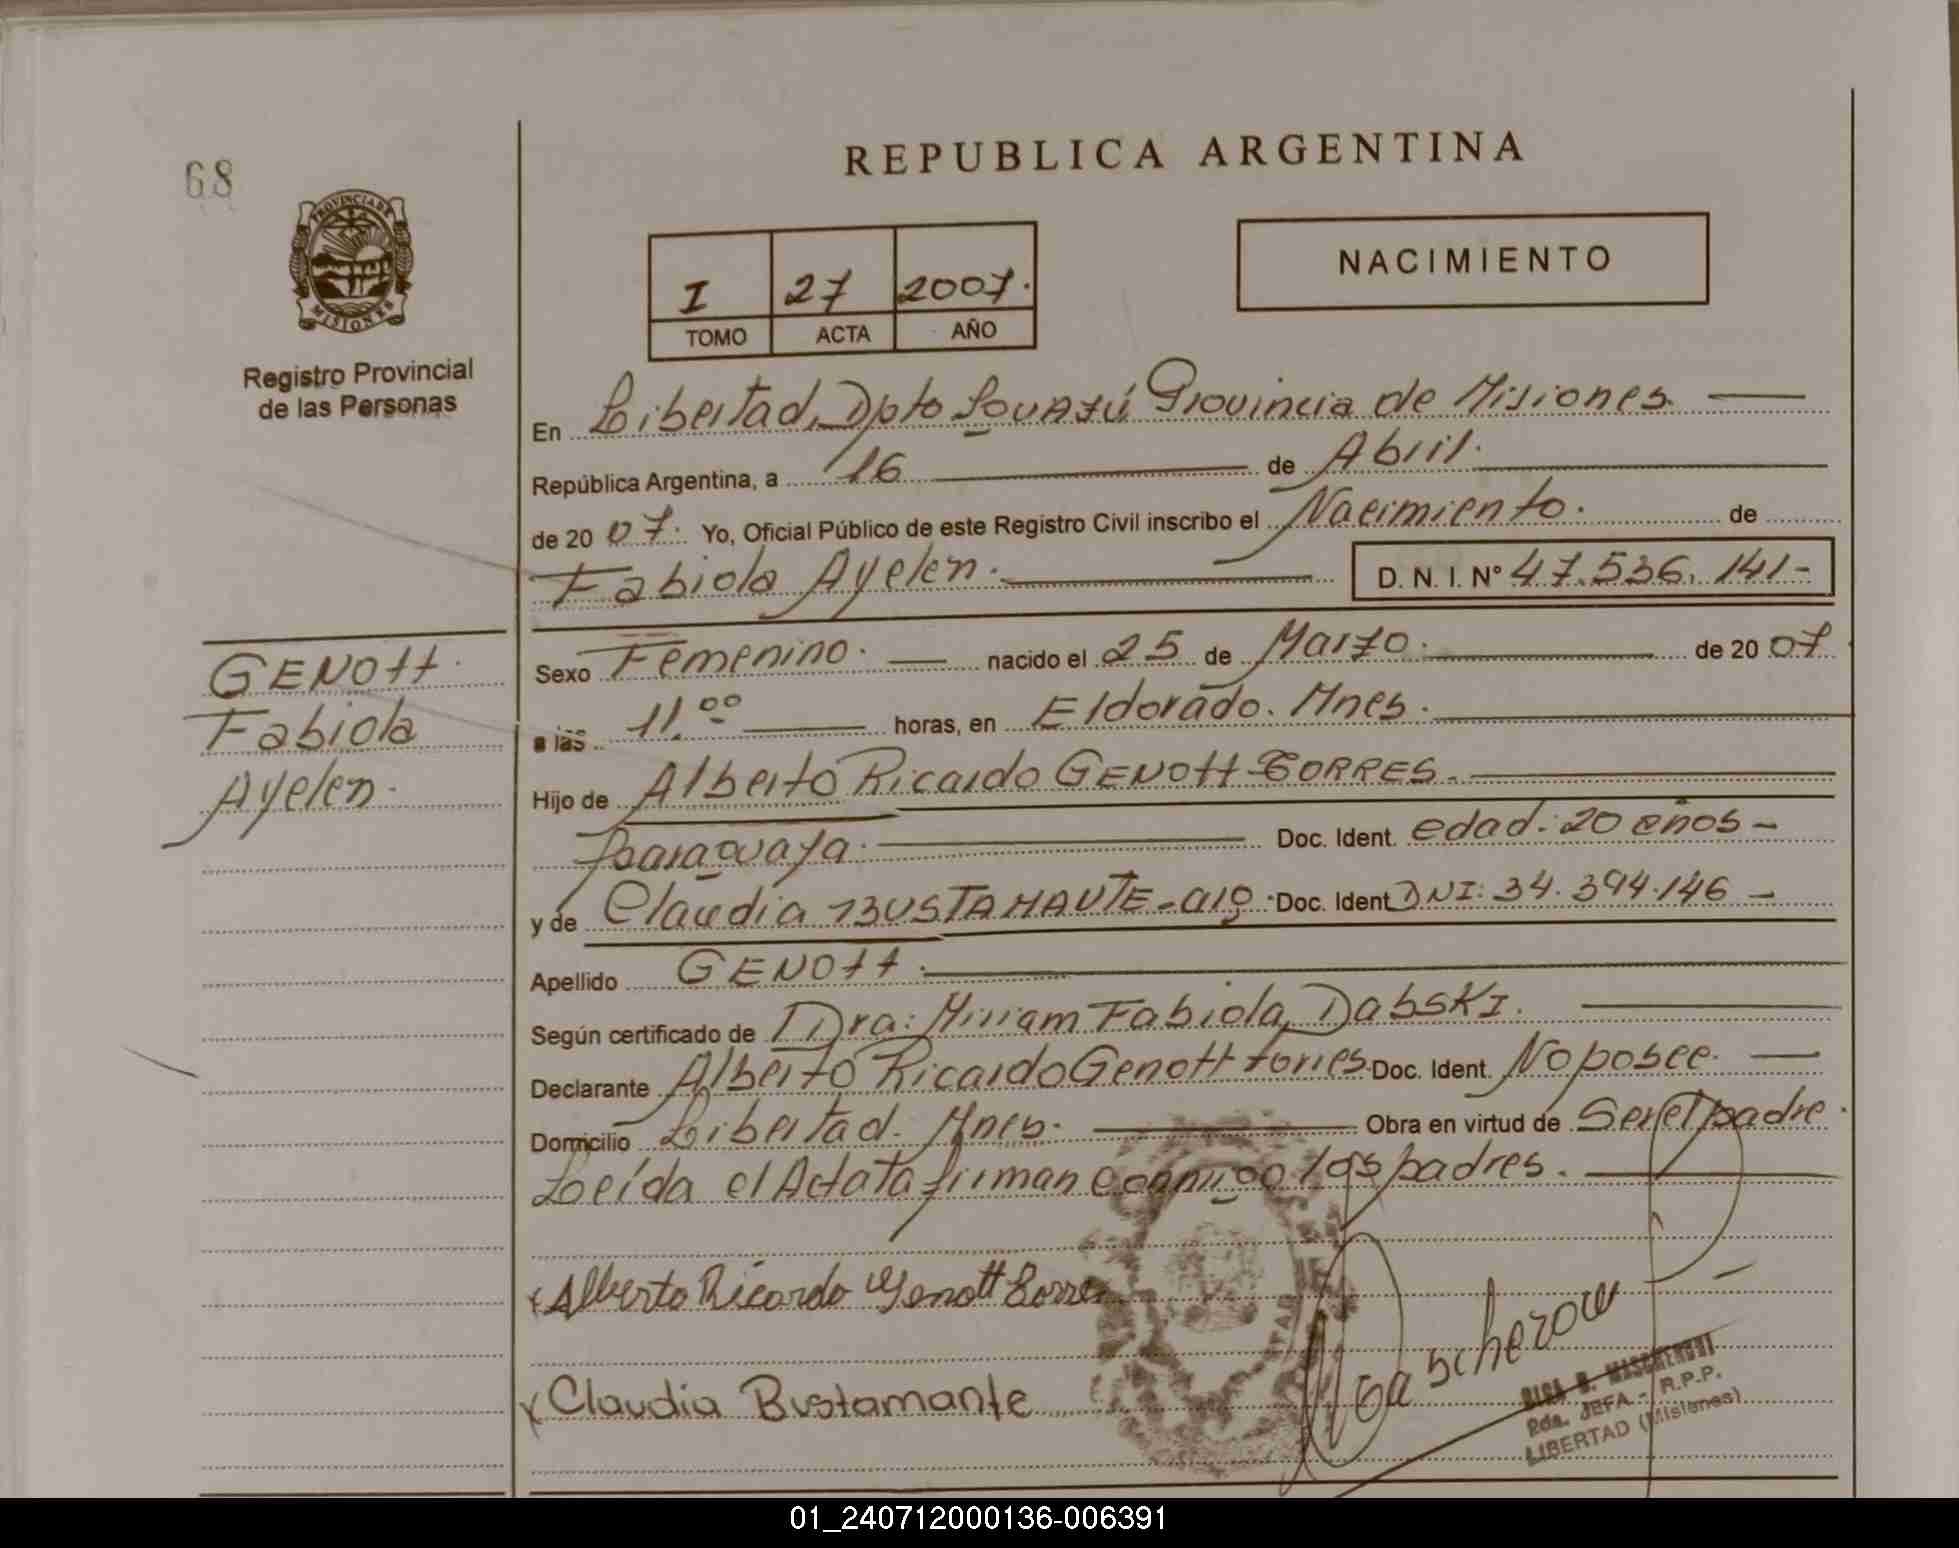 REPUBLICA ARGENTINA
68
PROVINCIA DE
MISIONES
Registro Provincial
de las Personas
I 27 2007.
TOMO ACTA AÑO
NACIMIENTO
En Libertad, Dpto Iguazú Provincia de Misiones
República Argentina, a 16 de Abril.
de 20 07. Yo, Oficial Público de este Registro Civil inscribo el Nacimiento. de
Fabiola Ayelen. D. N. I. N° 47.536.141-
GENOTT.
Fabiola
Ayelen.
Sexo Femenino. nacido el 25 de Marzo. de 20 07.
a las 11.00 horas, en Eldorado. Mnes.
Hijo de Alberto Ricardo GENOTT-TORRES.
Paraguaya. Doc. Ident. edad: 20 años-
y de Claudia BUSTAMANTE-arg. Doc. Ident DNI: 34.394.146-
Apellido GENOTT.
Según certificado de Dra: Miriam Fabiola DabsKI.
Declarante Alberto Ricardo Genott torres. Doc. Ident. No posee.
Domicilio Libertad. Mnes. Obra en virtud de Ser el padre.
Leída el Acta la firman conmigo los padres.
x Alberto Ricardo Genott Torres
x Claudia Bustamante
Mascheroni
MASCHERONI
JEFA - R.P.P.
LIBERTAD (Misiones)
01_240712000136-006391